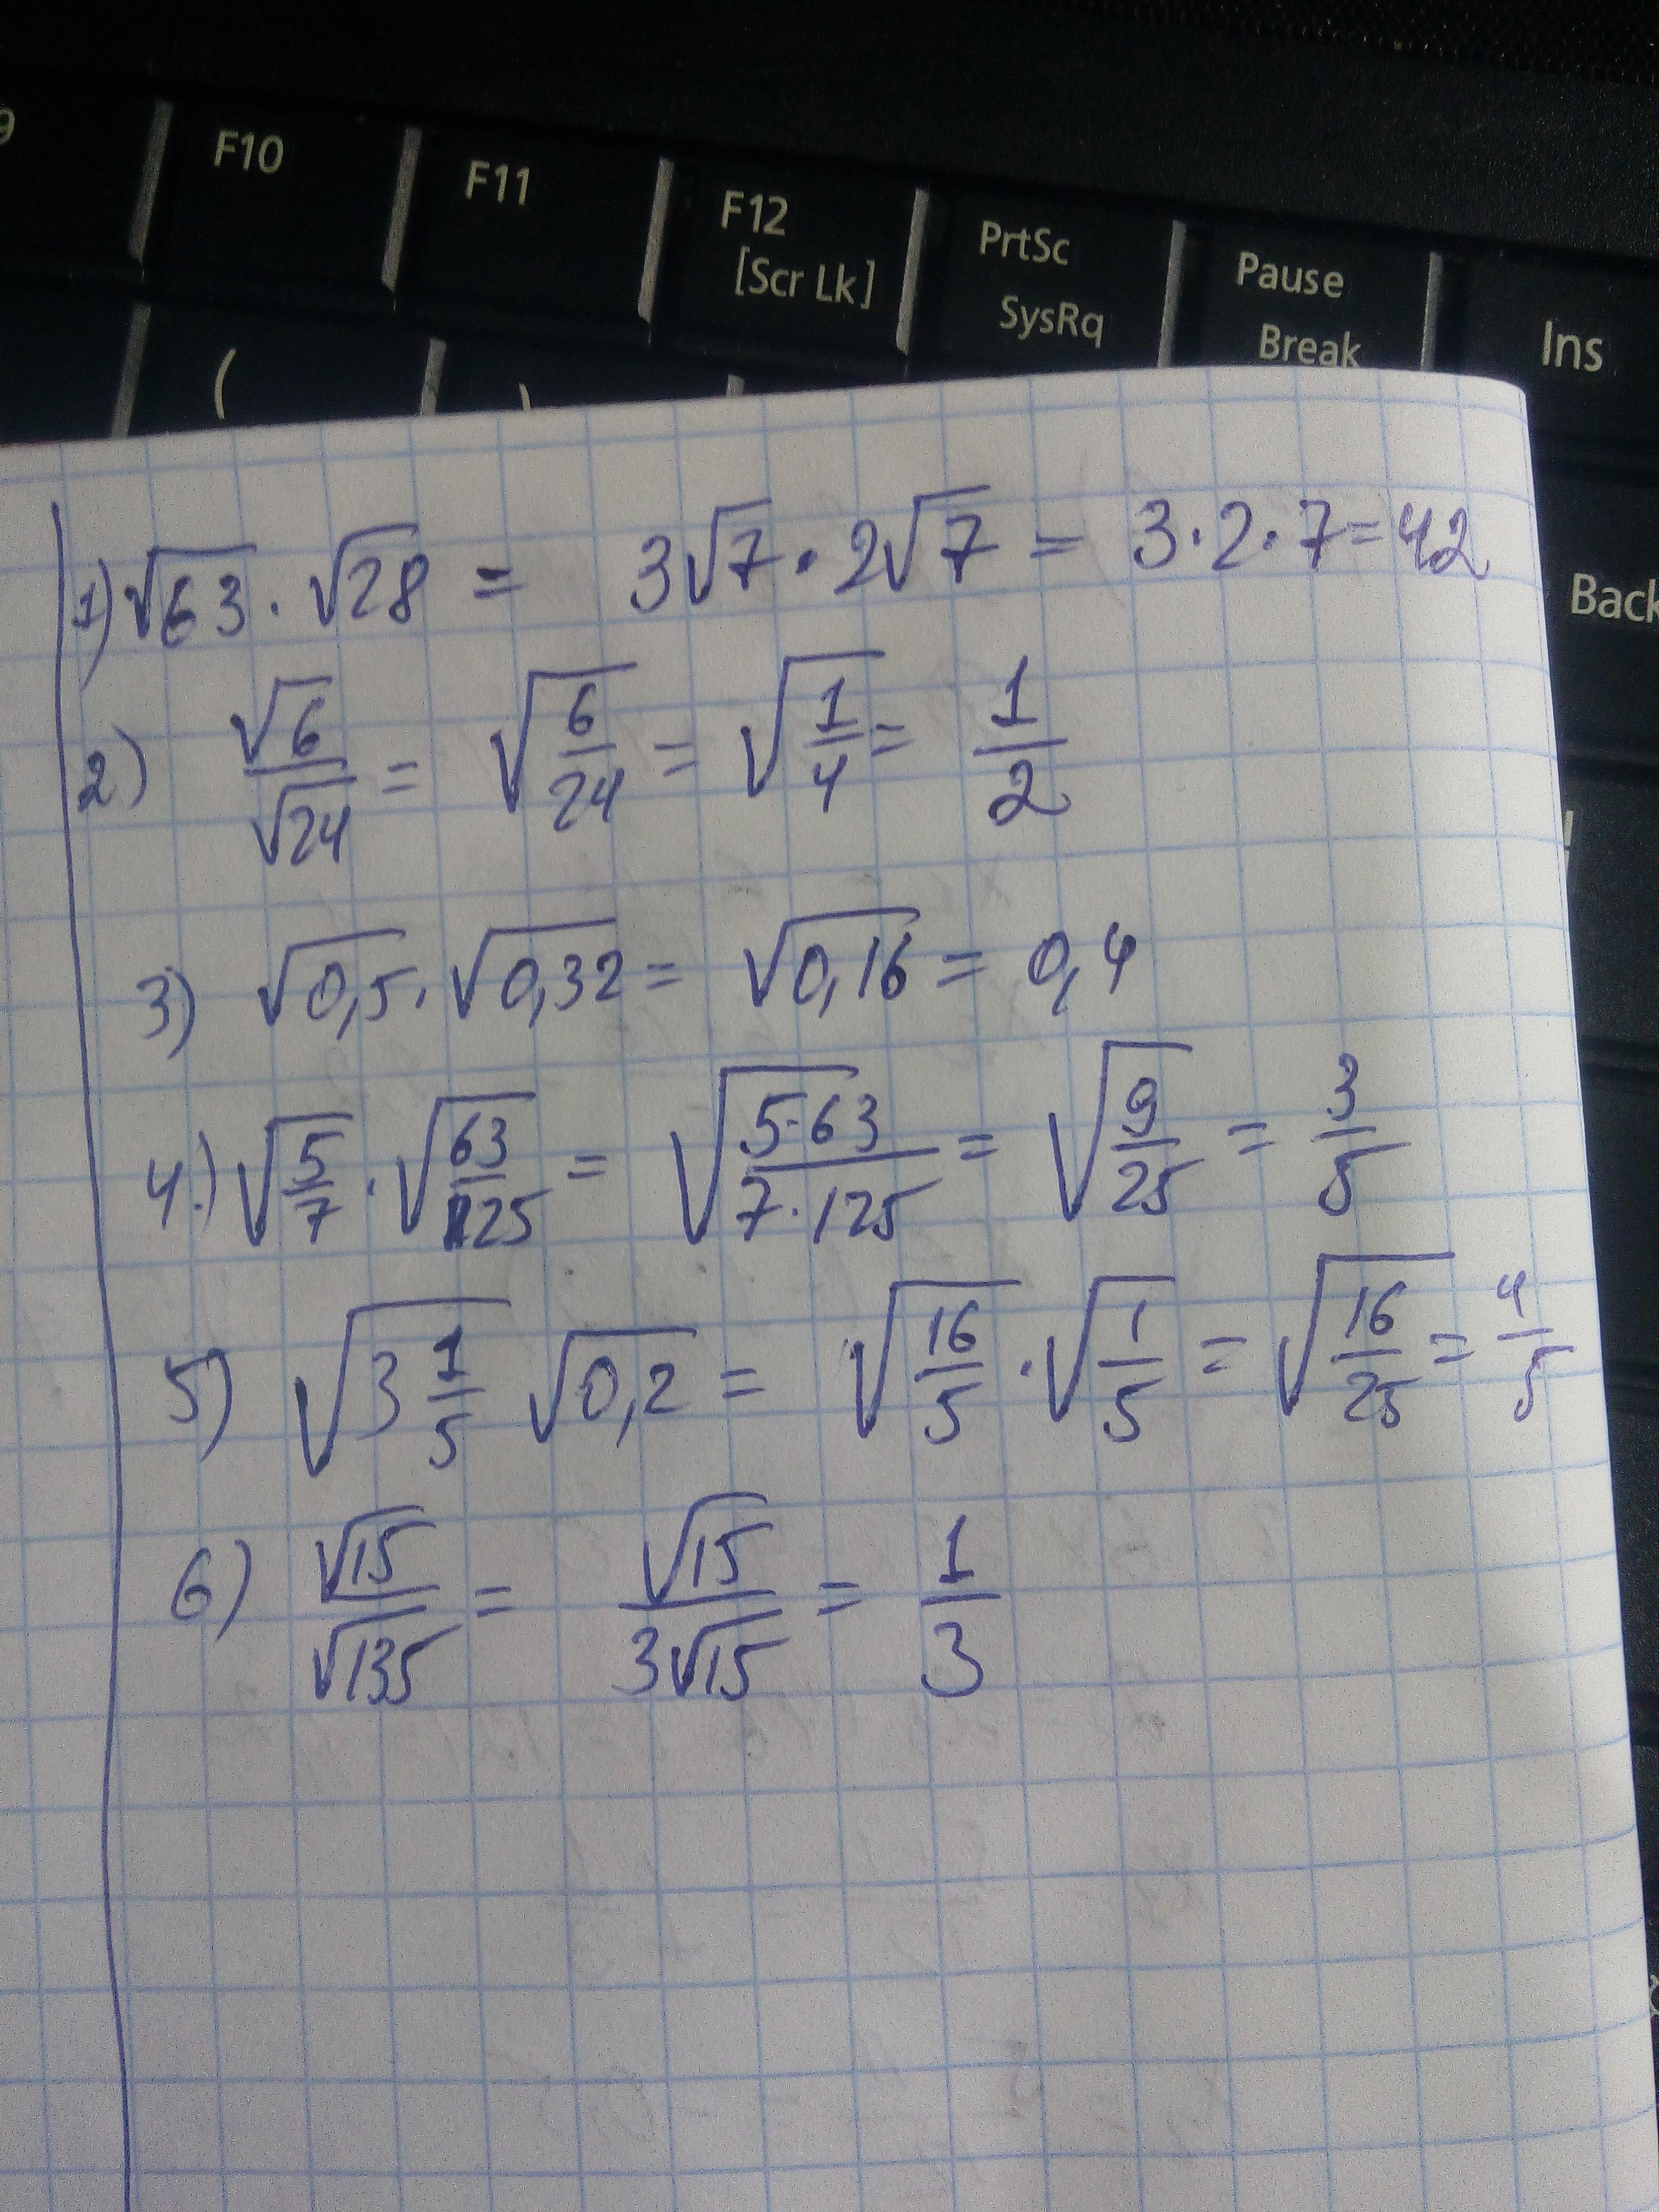 9 F10 F11 F12 PrtSc Pause Ins
[Scr Lk] SysRq Break
(
Back
1) √63 · √28 = 3√7 · 2√7 = 3·2·7=42
2) √6/√24 = √(6/24) = √(1/4) = 1/2
3) √0,5 · √0,32 = √0,16 = 0,4
4.) √(5/7) · √(63/125) = √(5·63/7·125) = √(9/25) = 3/5
5) √(3 1/5) √0,2 = √(16/5) · √(1/5) = √(16/25) = 4/5
6) √15/√135 = √15/3√15 = 1/3